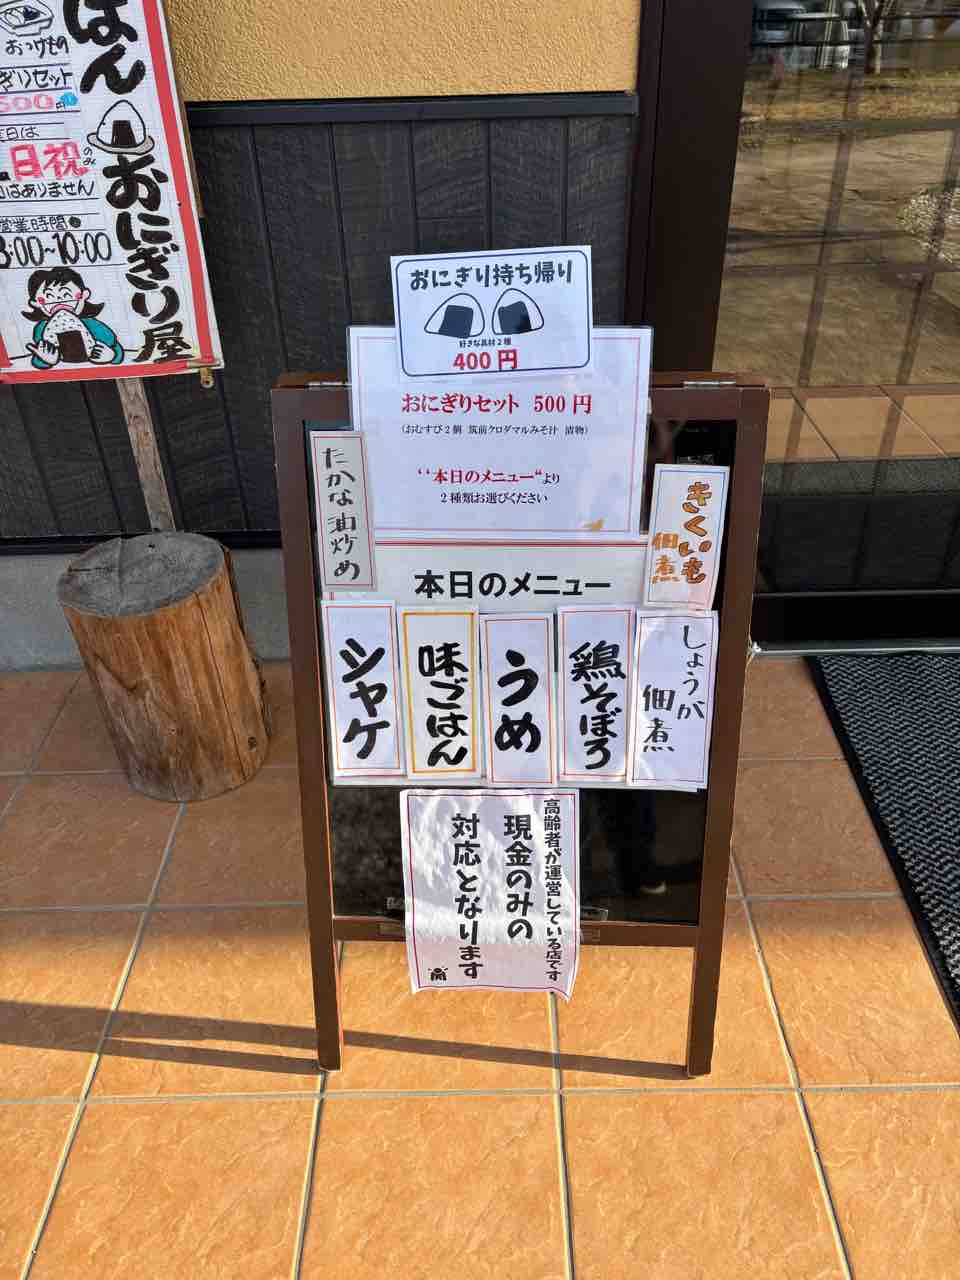 はん
おにぎり屋
おつけもの
ぎりセット
500円
日祝のみ
はありません
営業時間
8:00~10:00
おにぎり持ち帰り
好きな具材2種
400円
おにぎりセット 500円
（おむすび2個 筑前クロダマルみそ汁 漬物）
“本日のメニュー“より
2種類お選びください
たかな油炒め
きくいも
佃煮
本日のメニュー
シャケ
味ごはん
うめ
鶏そぼろ
しょうが
佃煮
高齢者が運営している店です。
現金のみの
対応となります